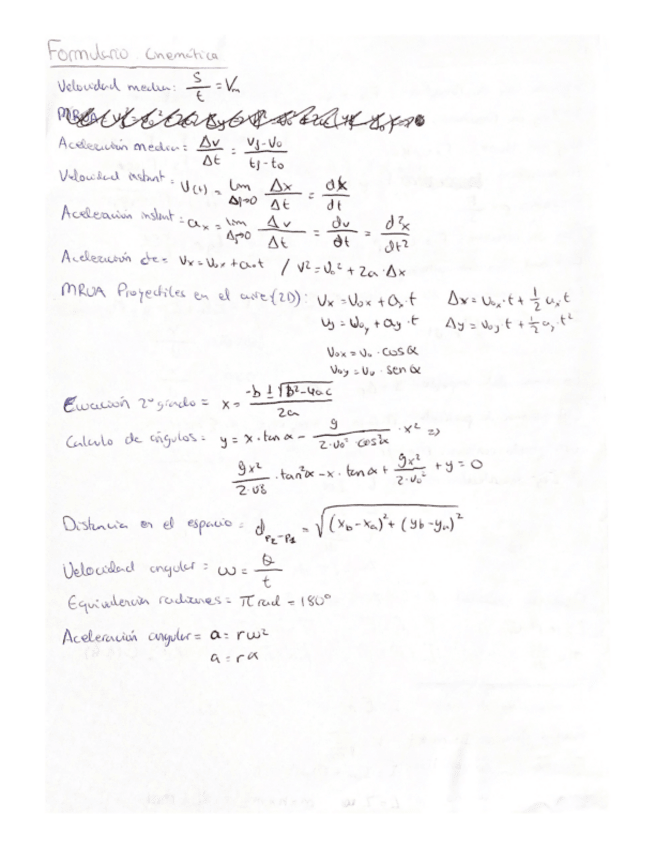 Formulario Cinemática
Velocidad media: S/t = Vm
MRUA
Aceleración media: Δv/Δt = (vf-v0)/(tf-t0)
Velocidad instant: v(t) = lim Δt→0 Δx/Δt = dx/dt
Aceleración instant: ax = lim Δt→0 Δv/Δt = dv/dt = d²x/dt²
Aceleración cte= Vx = V0x + a·t / V² = V0² + 2a·Δx
MRUA Proyectiles en el aire (2D): Vx = V0x + ax·t Δx = V0x·t + 1/2 ax t
Vy = V0y + ay·t Δy = V0y·t + 1/2 ay t²
V0x = V0·cosα
V0y = V0·senα
Ecuación 2º grado = x = (-b ± √(b²-4ac))/2a
Calculo de ángulos = y = x·tanα - g/(2·V0²·cos²α)·x² ⇒
gx²/(2·V0²)·tan²α - x·tanα + gx²/(2·V0²) + y = 0
Distancia en el espacio = d P2-P1 = √((xb-xa)² + (yb-ya)²)
Velocidad angular = ω = θ/t
Equivalencia radianes = π rad = 180°
Aceleración angular = a = rω²
a = rα